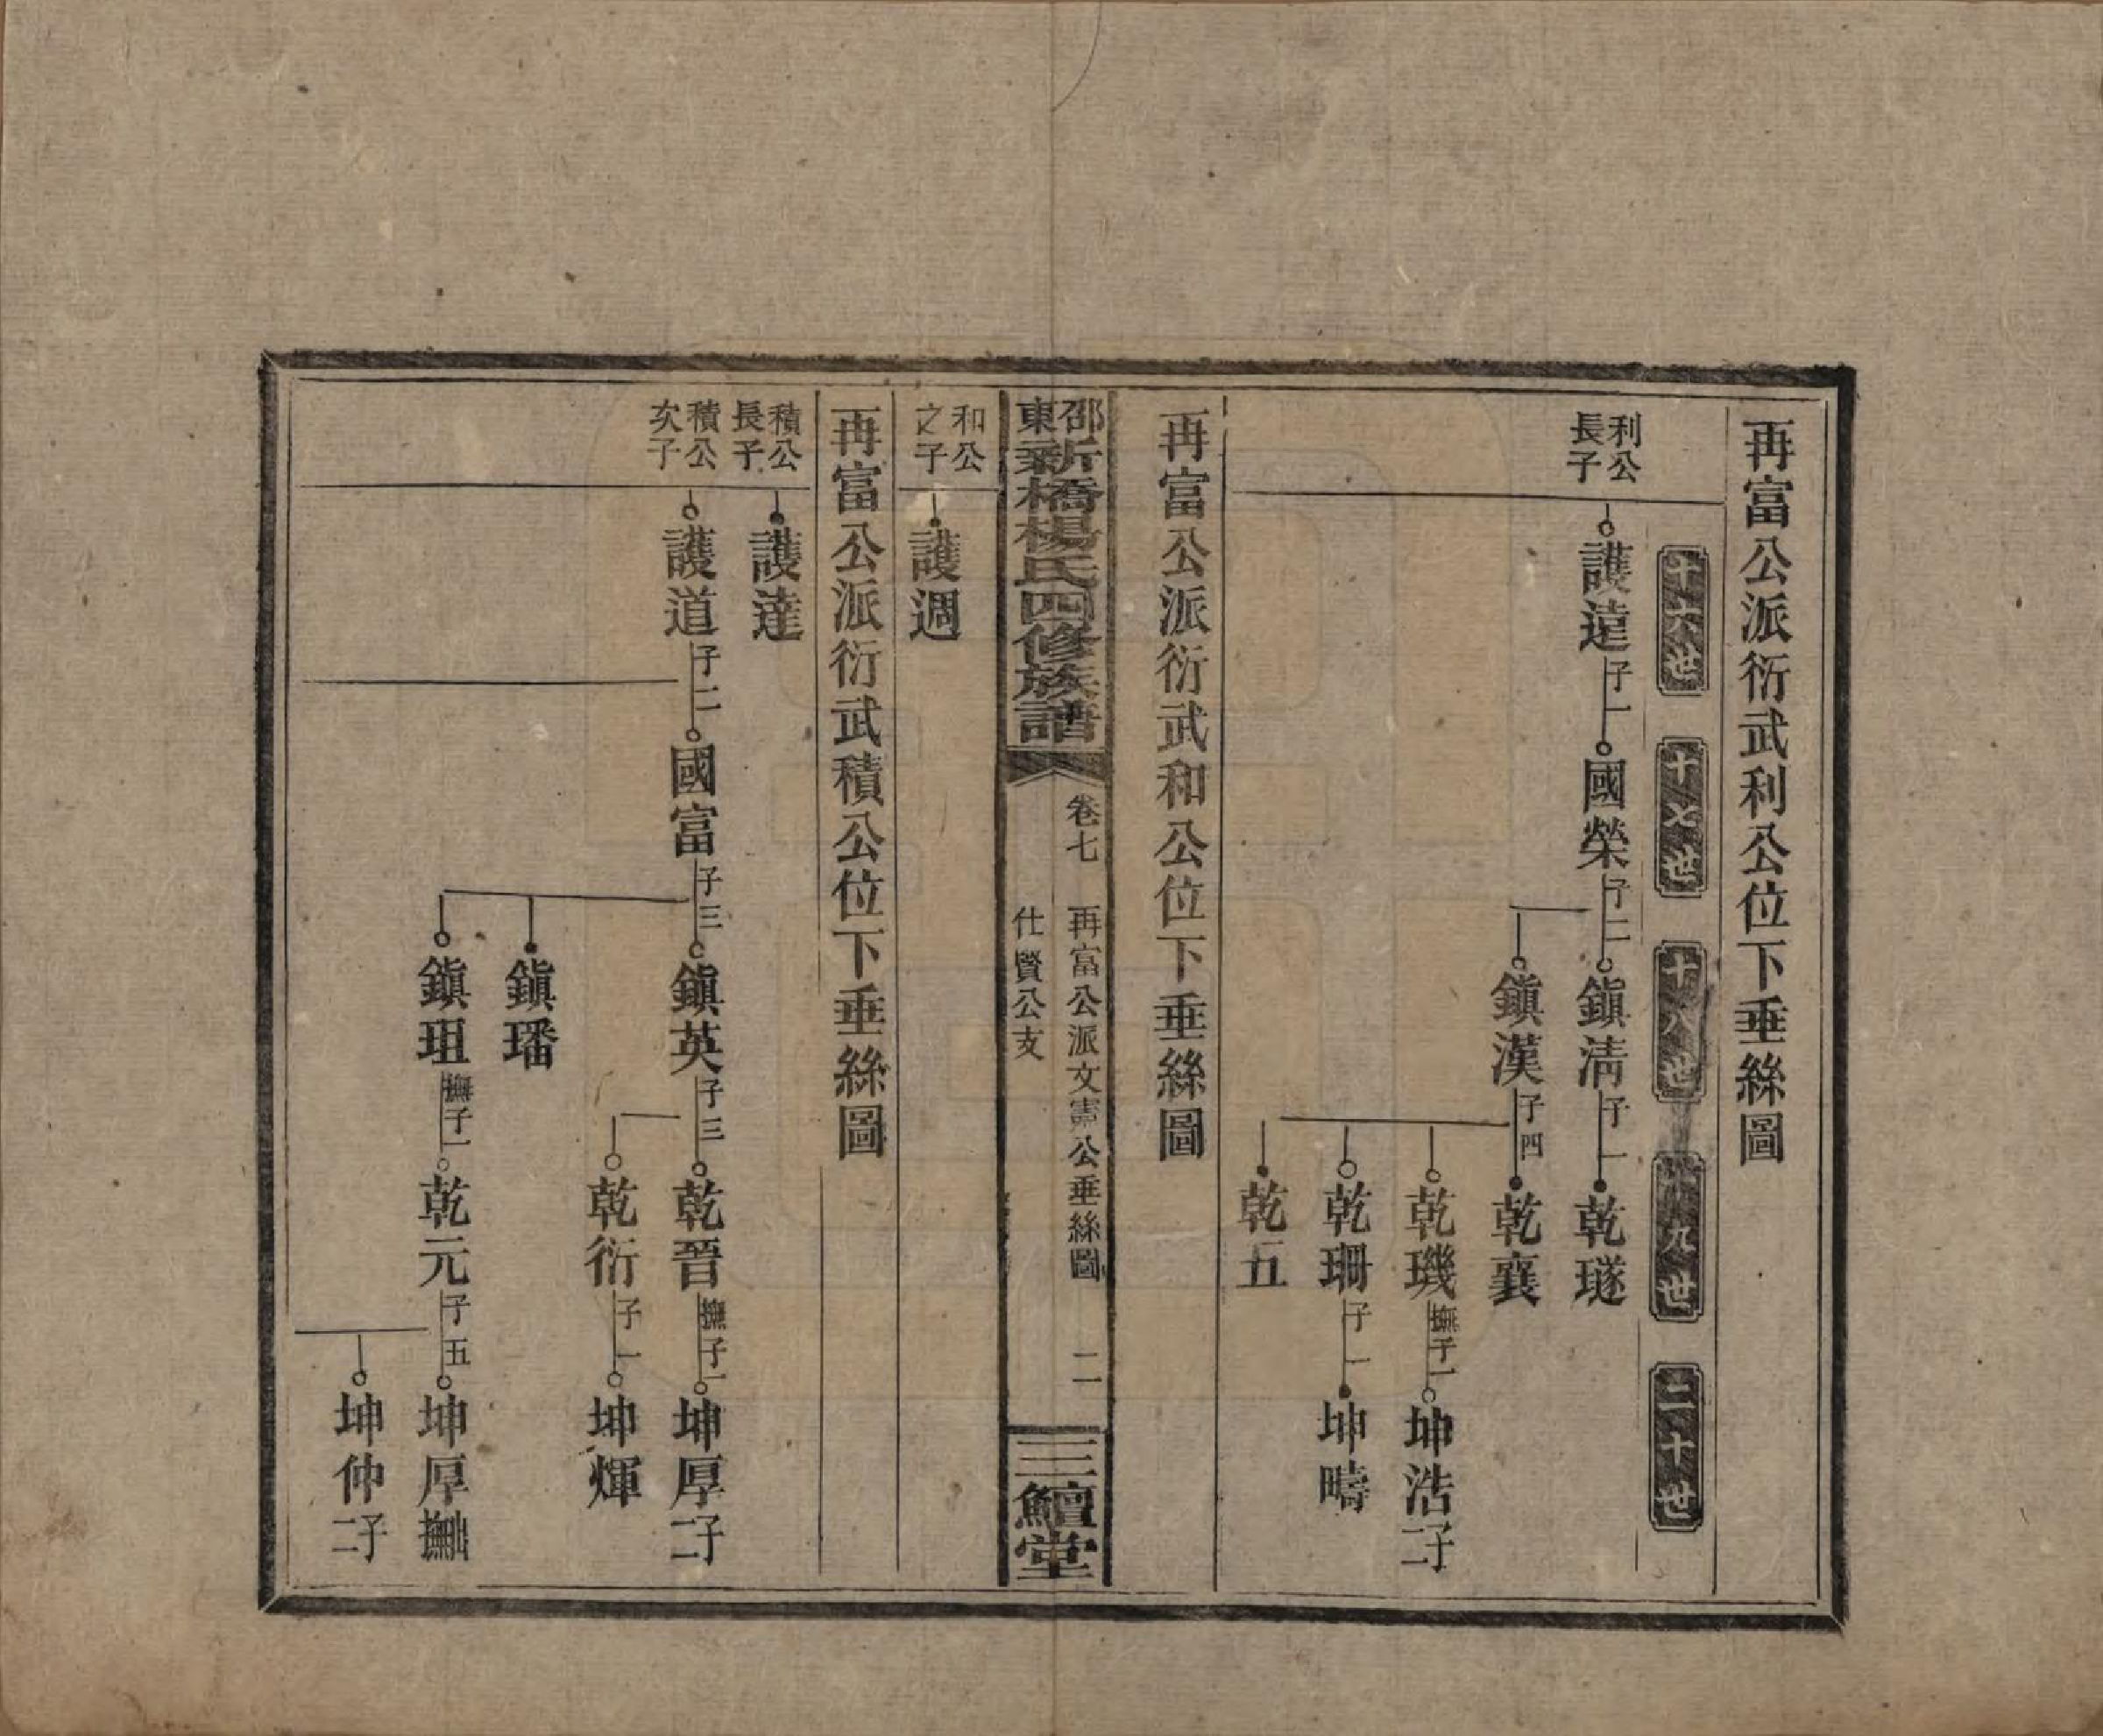 再富公派衍武利公位下垂絲圖
十六世
十七世
十八世
十九世
二十世
利公長子
護遠子一
國榮子二
鎮清子一
乾璲
鎮漢子四
乾襄
乾璣撫子一
坤浩二子
乾珊子一
坤疇
乾五
再富公派衍武和公位下垂絲圖
邵東新橋楊氏四修族譜
卷七
再富公派文憲公垂絲圖
仕賢公支
二
三鱣堂
和公之子
護週
再富公派衍武積公位下垂絲圖
積公長子
護達
積公次子
護道子二
國富子三
鎮英子三
乾晉撫子一
坤厚二子
乾衍子一
坤輝
鎮璠
鎮珇撫子一
乾元子五
坤厚出撫
坤仲二子